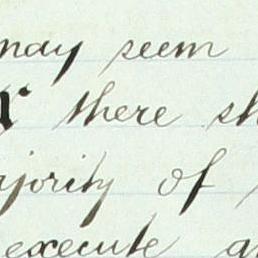 may seem
there sh
jority of
execute